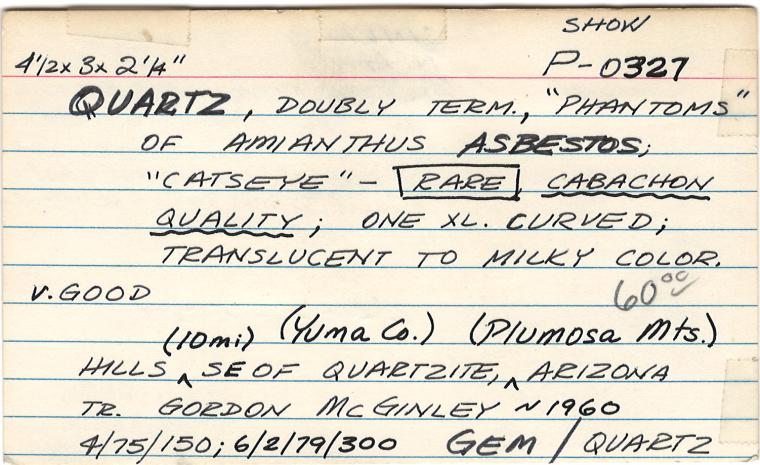 SHOW
4 1/2 x 3 x 2 1/4" P-0327
QUARTZ, DOUBLY TERM., "PHANTOMS"
OF AMIANTHUS ASBESTOS;
"CATSEYE" - RARE, CABACHON
QUALITY; ONE XL. CURVED;
TRANSLUCENT TO MILKY COLOR.
V. GOOD 60⁰⁰
(10mi) (Yuma Co.) (Plumosa Mts.)
HILLS ^ SE OF QUARTZITE, ^ ARIZONA
TR. GORDON McGINLEY ~1960
4/75/150; 6/2/79/300 GEM / QUARTZ